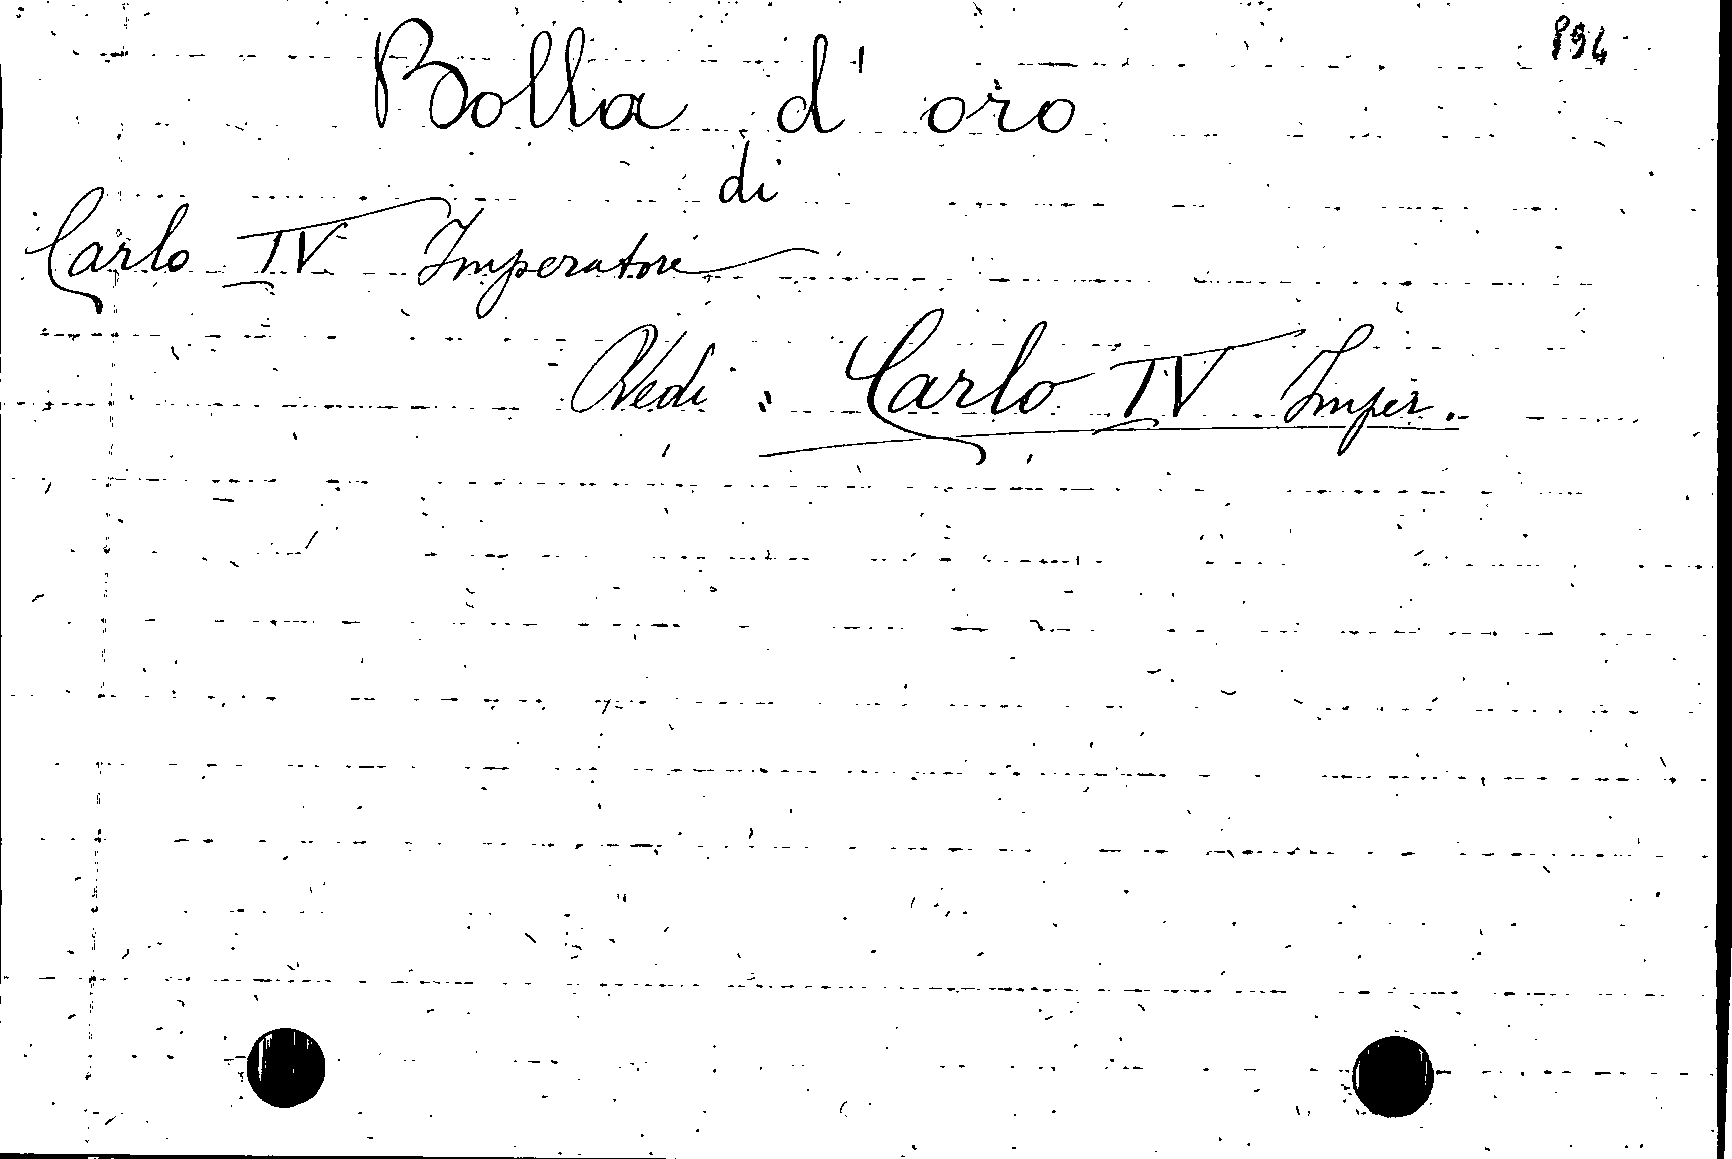 894
Bolla d'oro
di
Carlo IV Imperatore
Vedi : Carlo IV Imper.